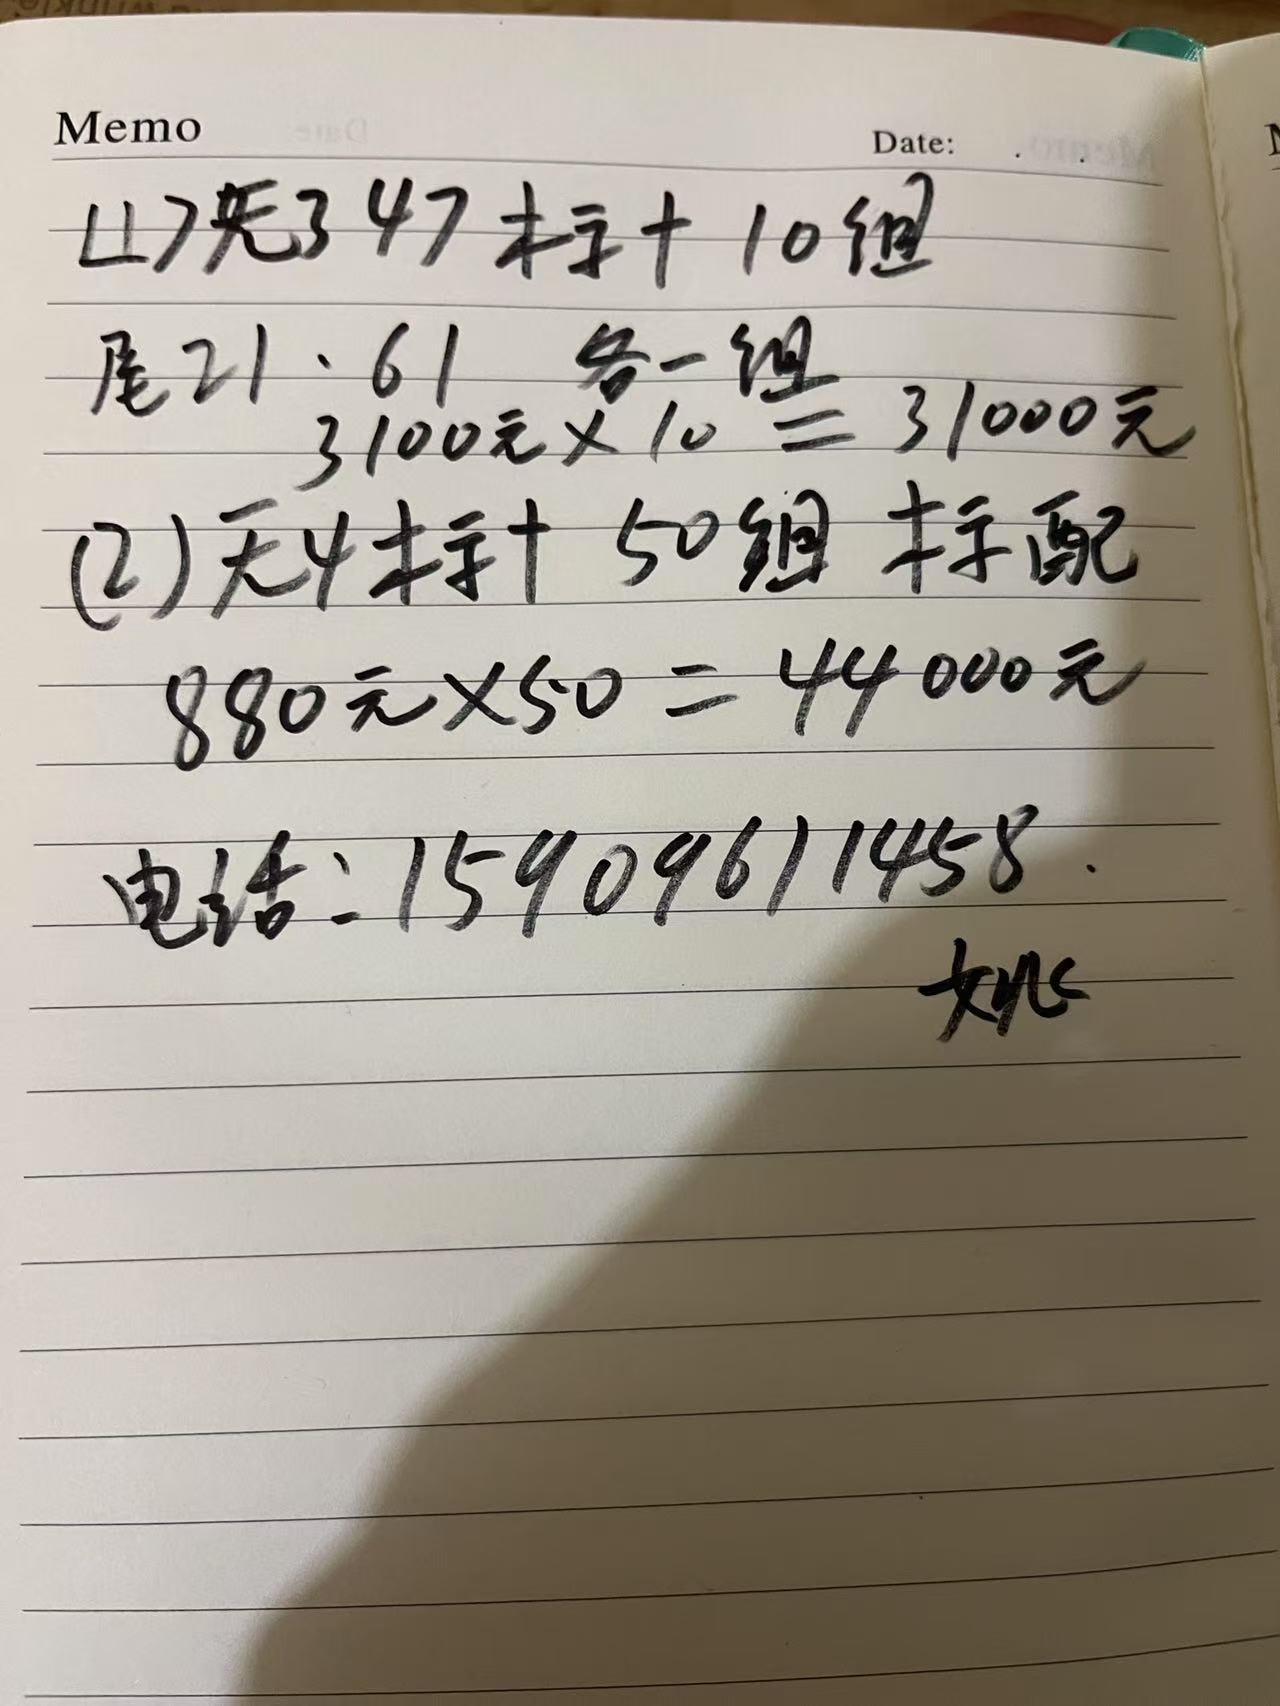 Memo Date: . .
(1)无347标十 10组
尾21·61 各一组
3100元×10=31000元
(2)无4标十 50组 标配
880元×50=44000元
电话:15909611458.
姚